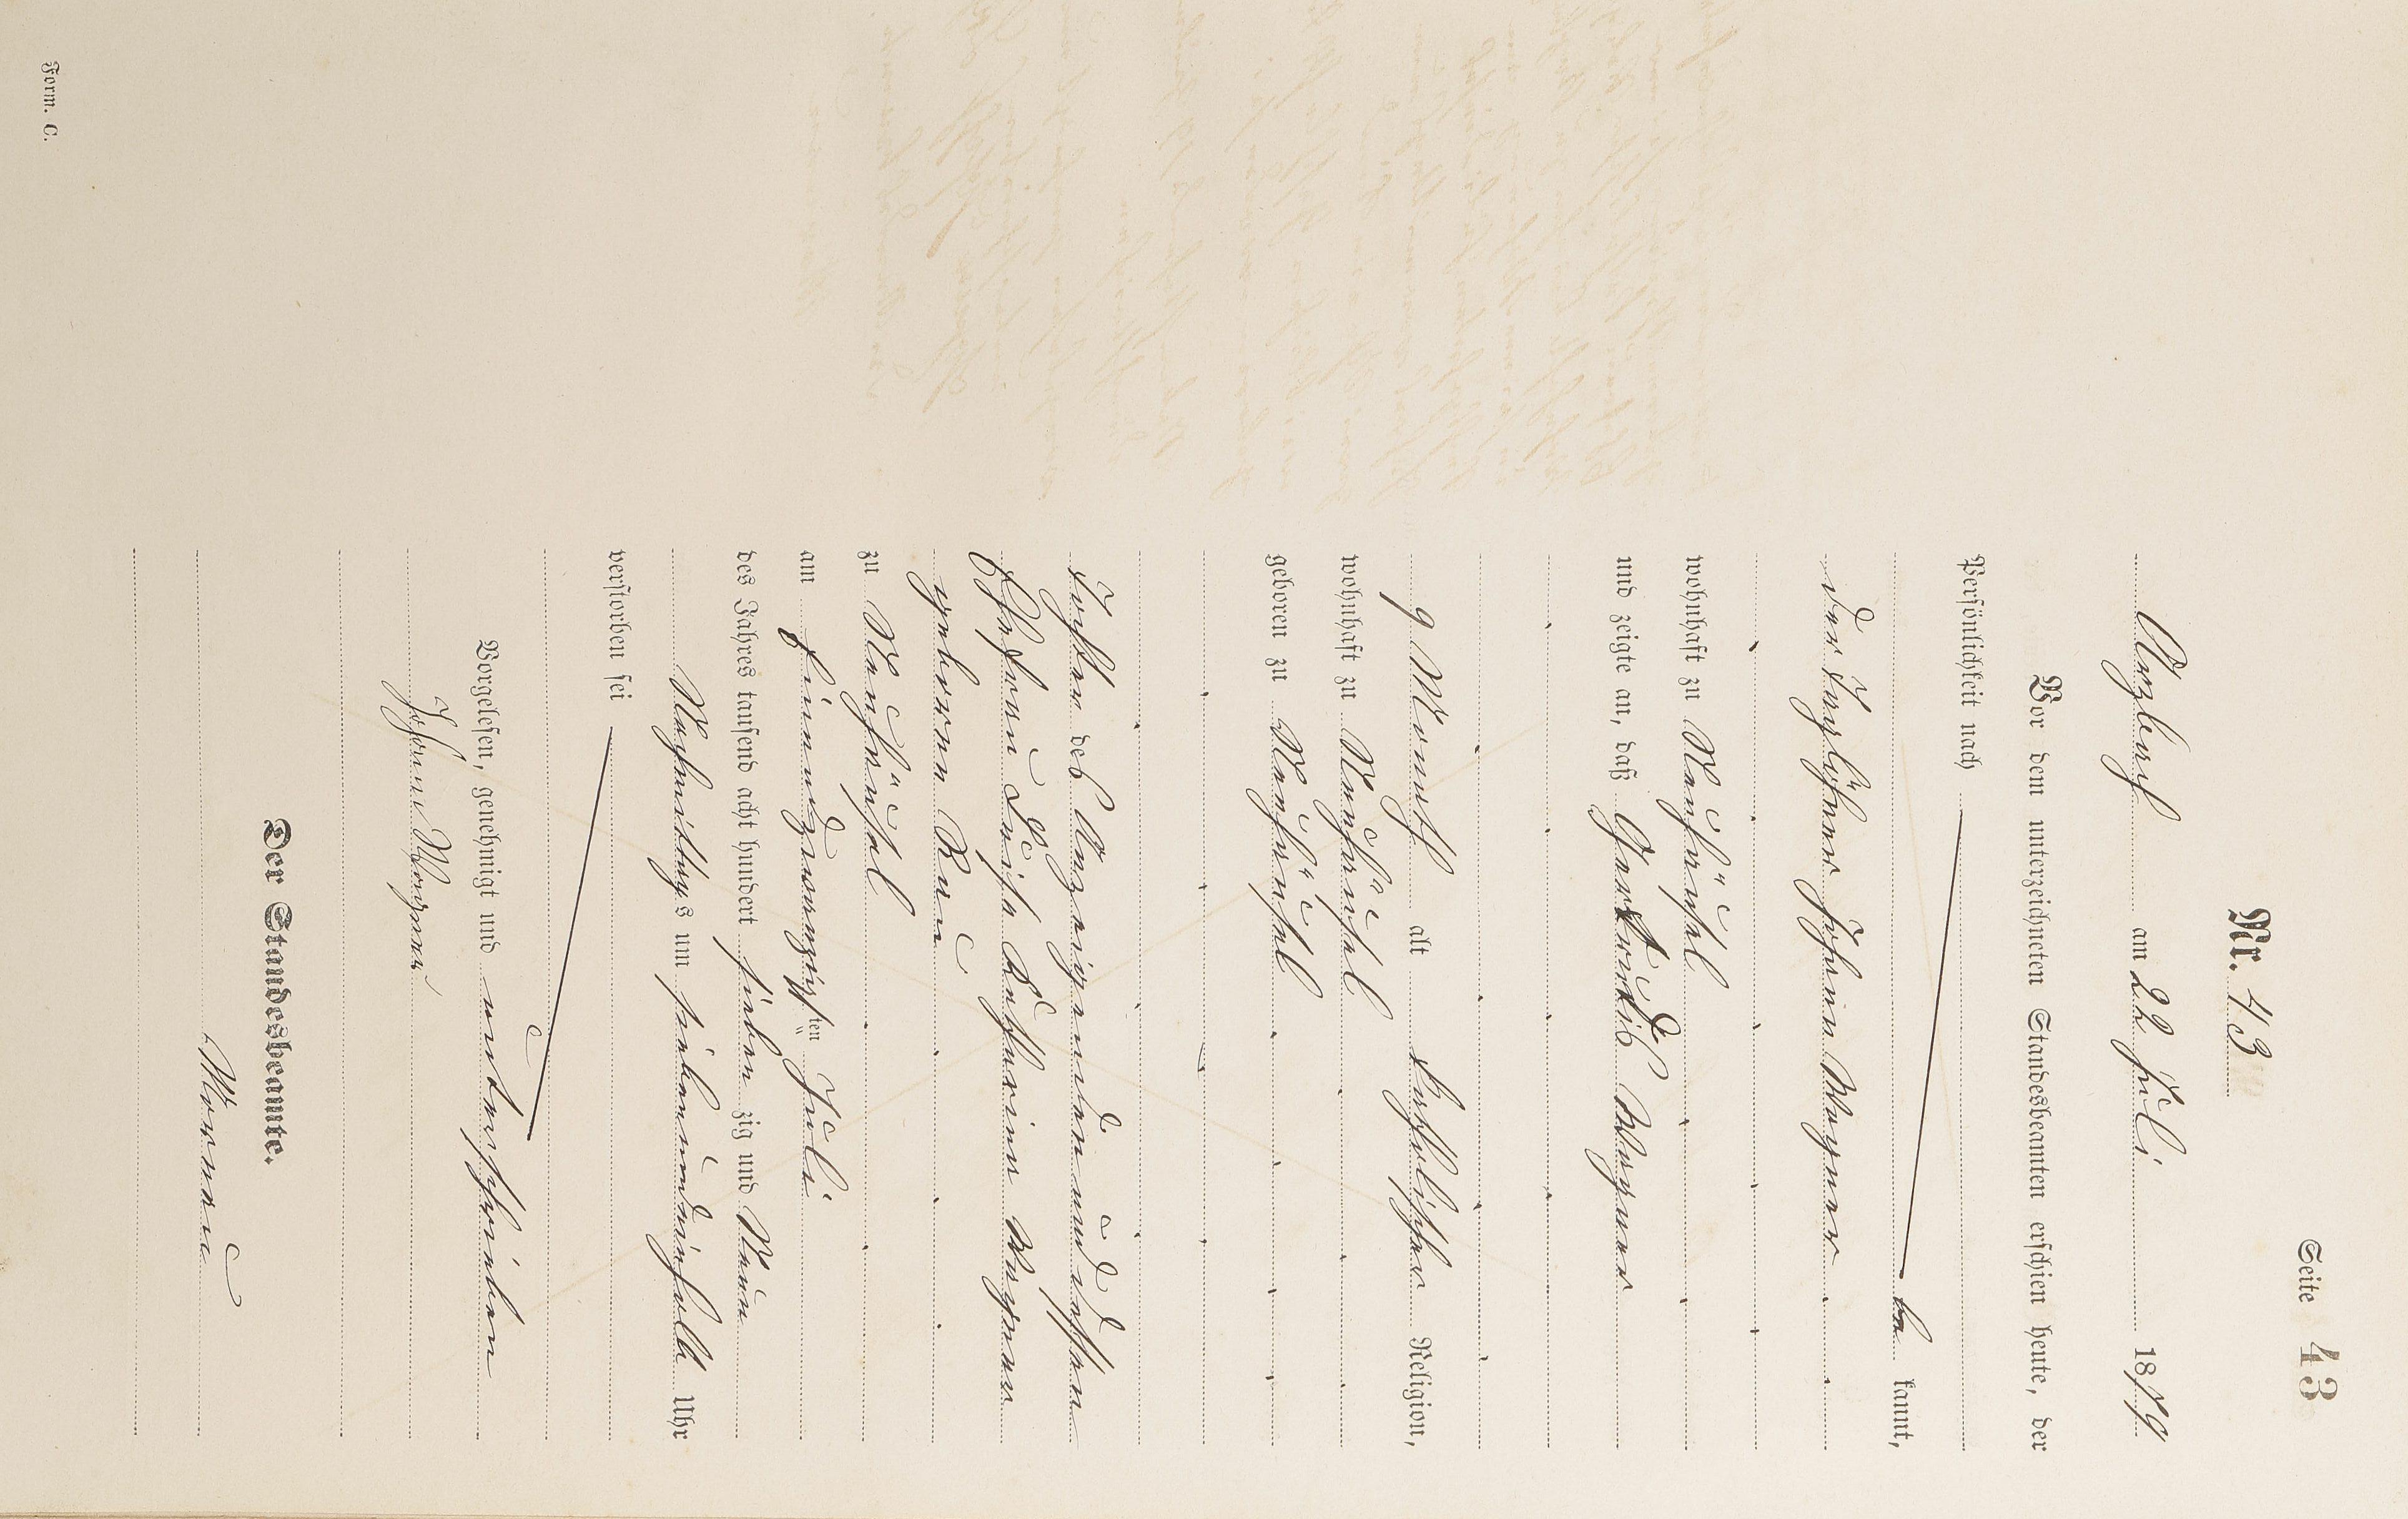 Seite 43
Nr. 43
Arzbach am 22 Juli 1879
Vor dem unterzeichneten Standesbeamten erschien heute, der
Persönlichkeit nach
be kannt,
der Taglöhner Johann Wagner
wohnhaft zu Neuhäusel
und zeigte an, daß Gertrudis Wagner
9 Monath alt katholischer Religion,
wohnhaft zu Neuhäusel
geboren zu Neuhäusel
Tochter des Anzeigenden und dessen
Ehefrau Luise Katharina Wagner
geborene Rau
zu Neuhäusel
am einundzwanzigsten Juli
des Jahres tausend acht hundert sieben zig und Neun
Nachmittags um siebenundeinhalb Uhr
verstorben sei
Vorgelesen, genehmigt und unterschrieben
Johann Wagner
Der Standesbeamte.
Form. C.